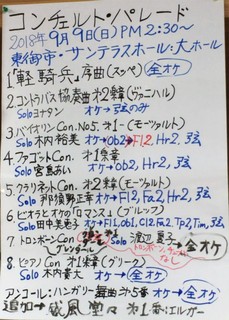 コンチェルト・パレード
2018年9月9日(日)PM2:30〜
東御市・サンテラスホール:大ホール
1「軽騎兵」序曲(スッペ) 全オケ
2.コントラバス協奏曲オ2楽章(ヴァニハル)
Soloヨナタン オケ→弦のみ
3.バイオリンCon.No5.オ1・(モーツァルト)
Solo木内裕美 オケ→Ob2→Fl2, Hr2, 弦
4.ファゴットCon オ1楽章
Solo宮島あい オケ→Ob2, Hr2, 弦
5.クラリネットCon. オ2楽章(モーツァルト)
Solo那須野正幸 オケ→Fl2, Fa2, Hr2, 弦
6 ビオラとオケの「ロマンス」(ブルッフ)
Solo田中美恵子 オケ→Fl, Ob1, Cl2, Fa2, Tp2, Tim, 弦
7 トロンボーンCon
Solo渡辺 全オケ
8.ピアノCon. オ1楽章(グリーク)
Solo木内貴大 オケ→全オケ
アンコール:ハンガリー舞曲オ5番→全オケ
追加→威風堂々 オ1番:エルガー